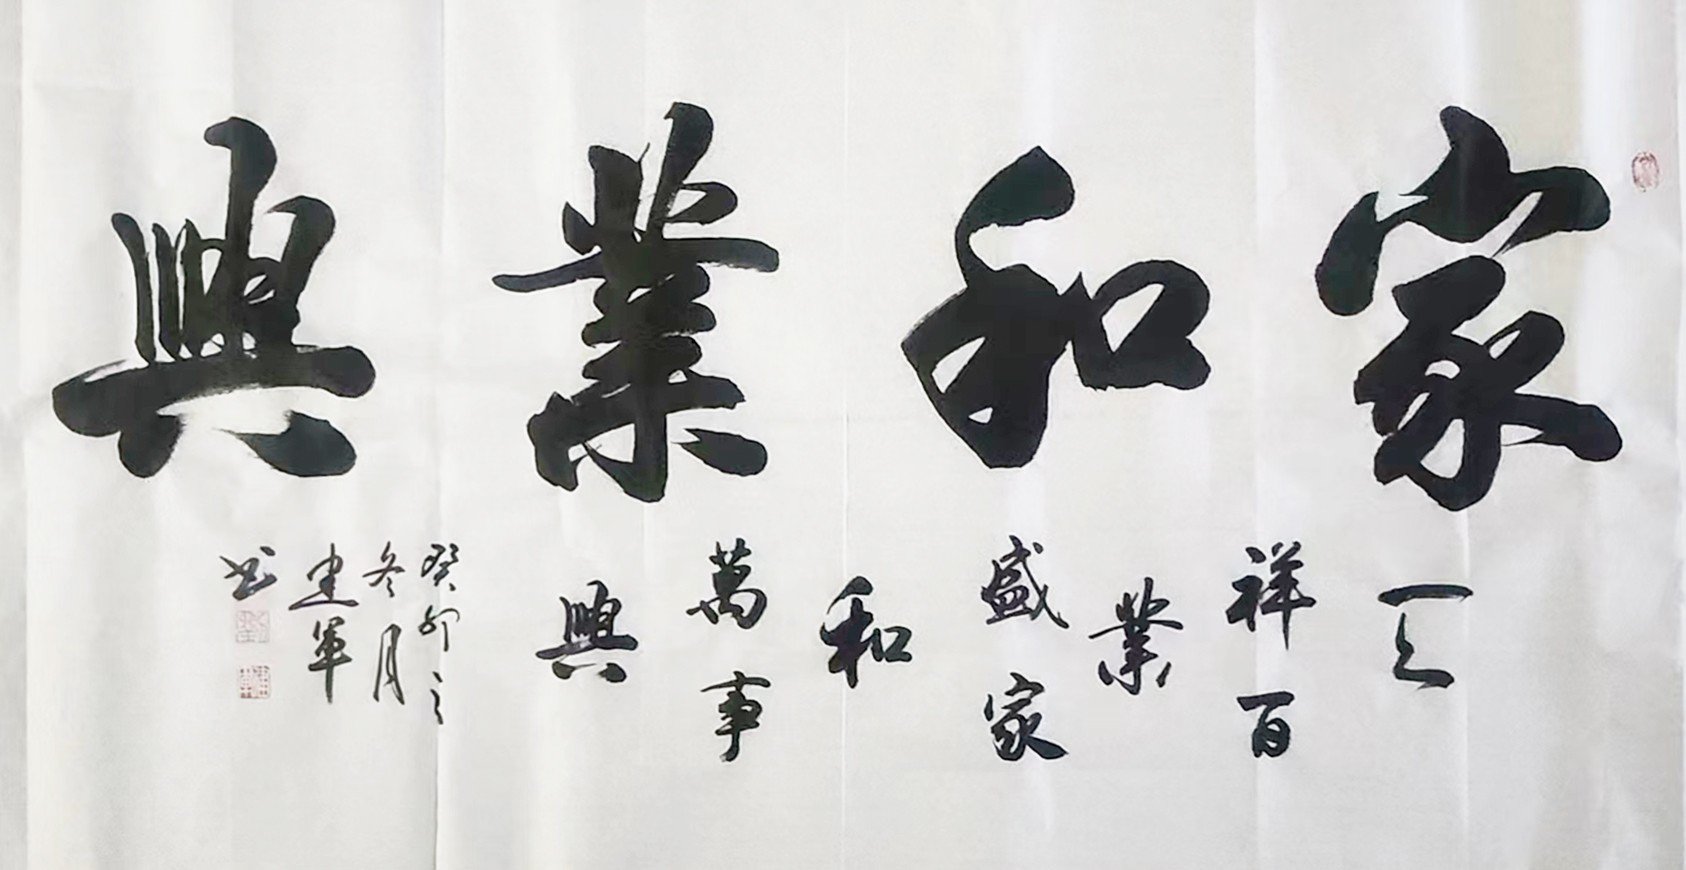 家和業興
祥百
業
盛家
和
萬事
興
癸卯之
冬月
建軍
书